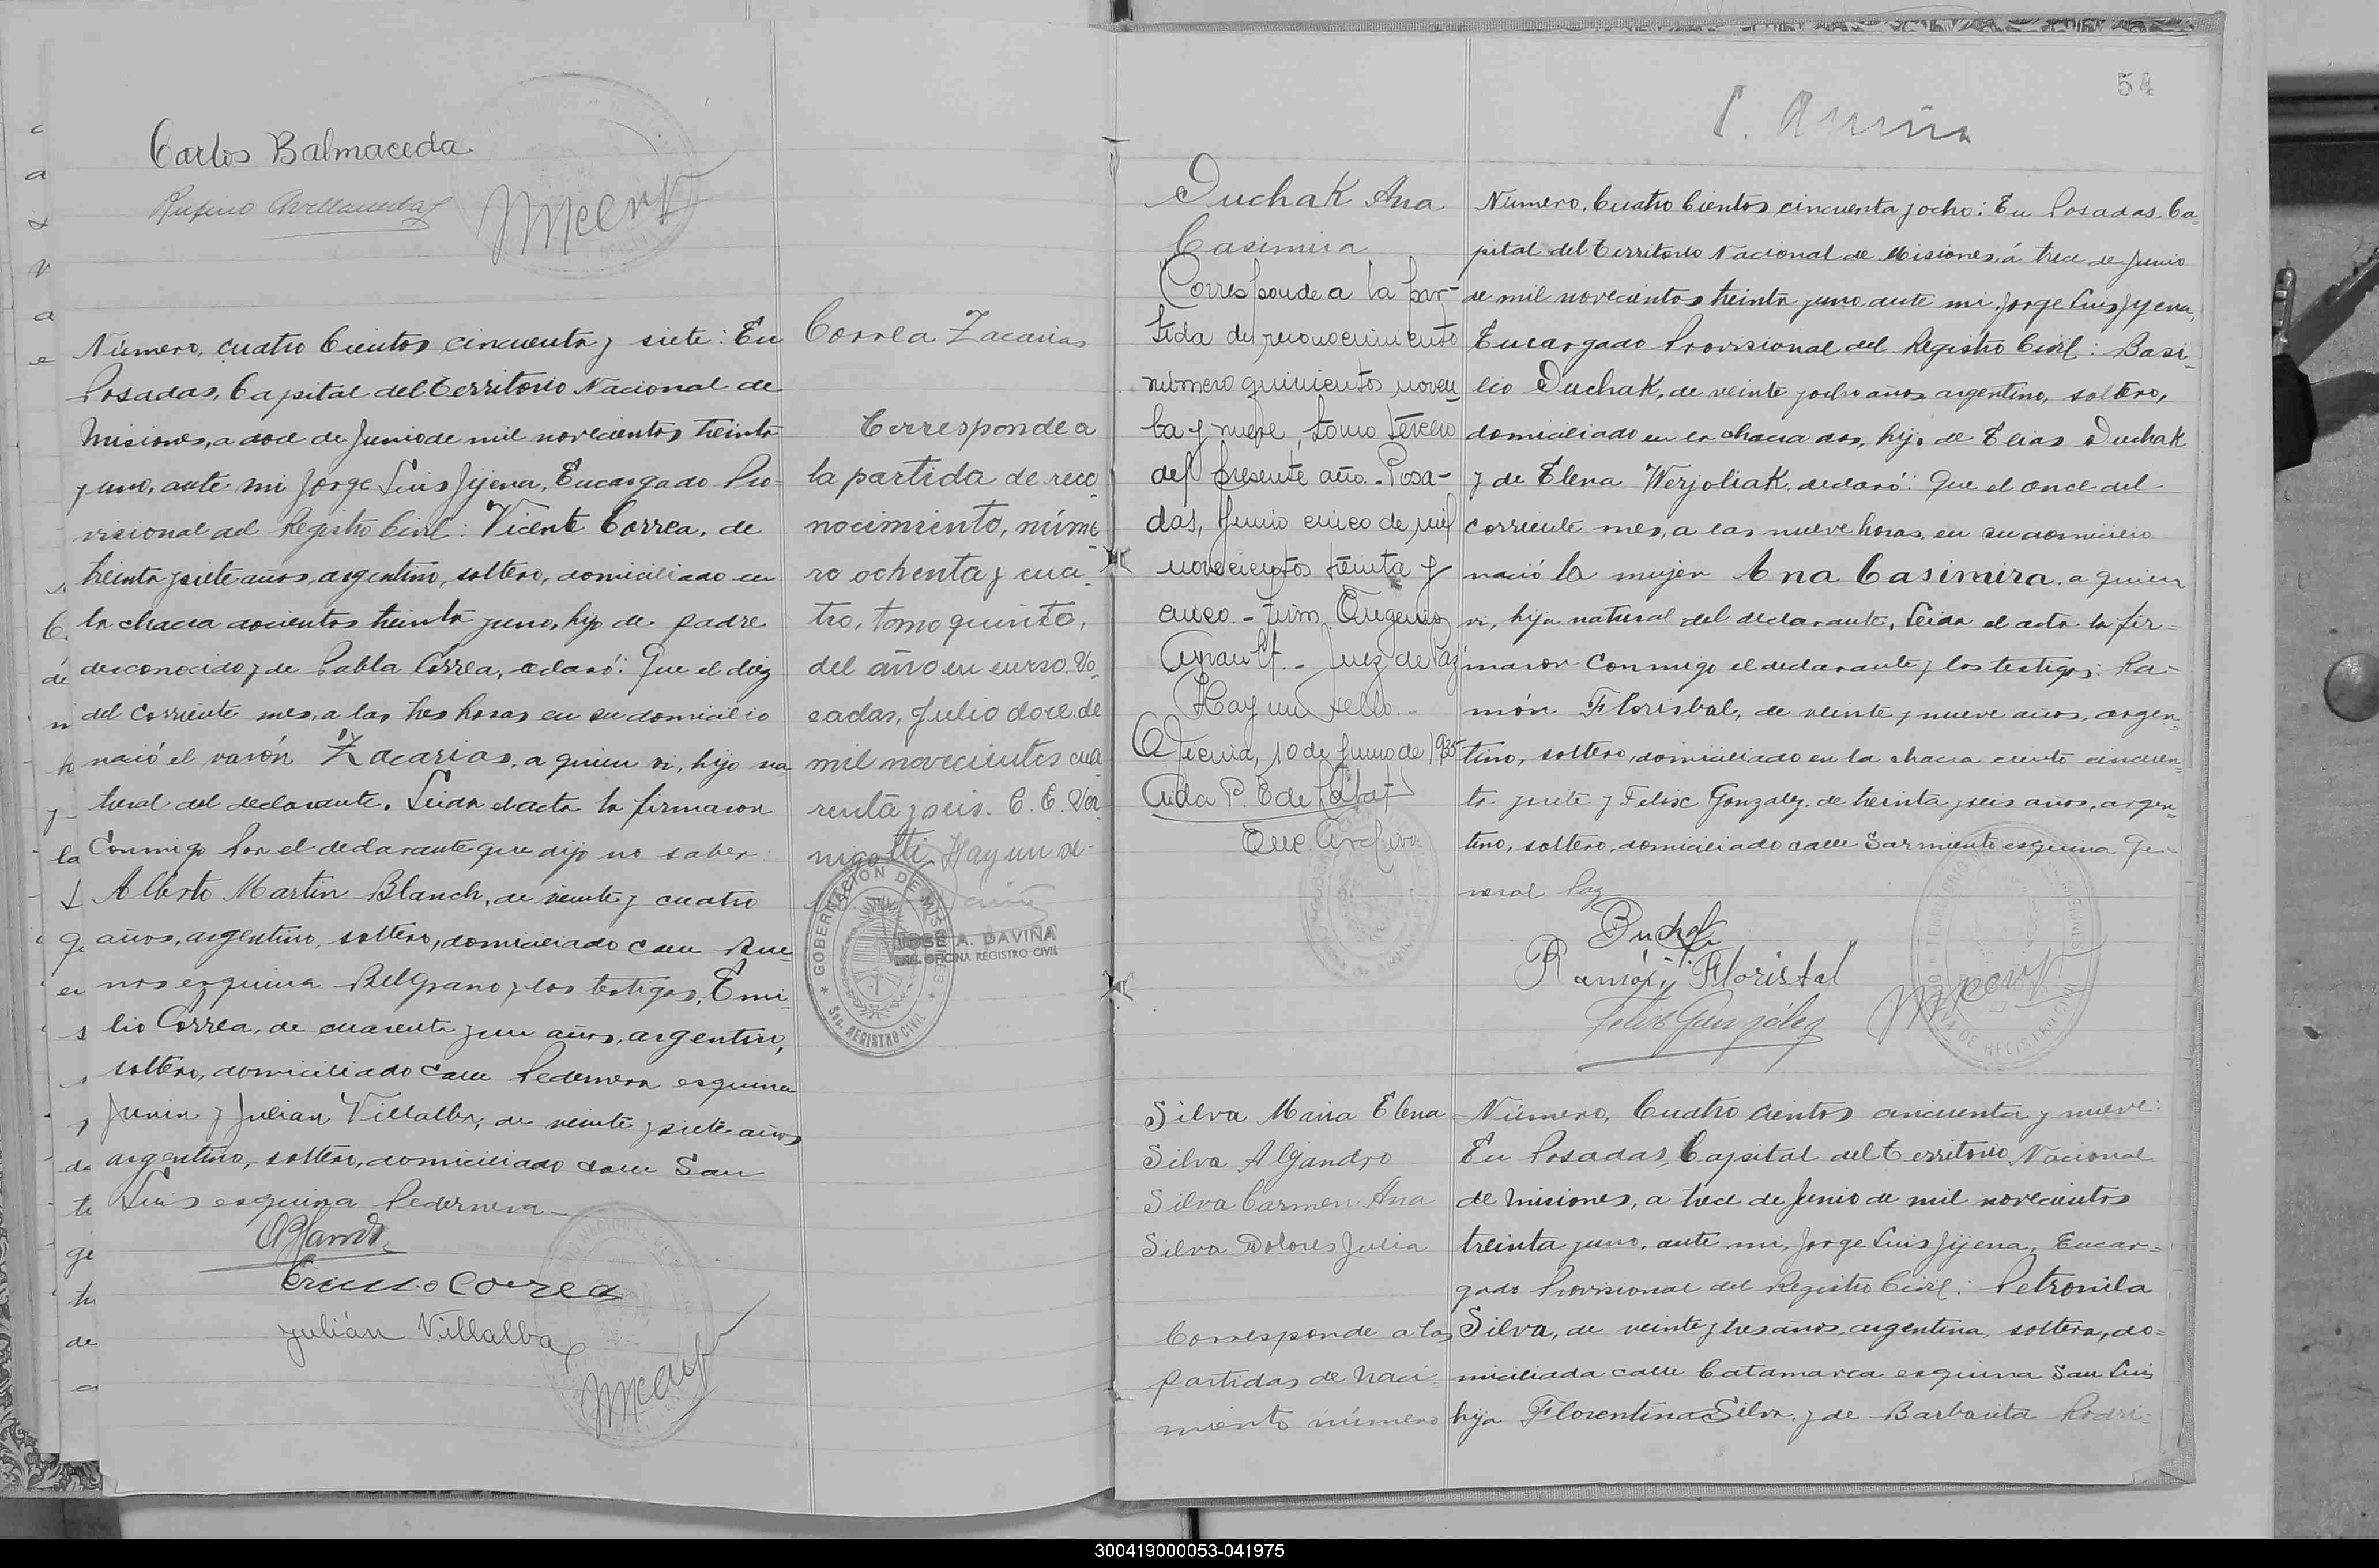 Carlos Balmaceda
Rufino Avellaneda
Número, cuatro Cientos cincuenta y siete: En
Posadas, Capital del Territorio Nacional de
Misiones, a doce de Junio de mil novecientos treinta
y uno, ante mi Jorge Luis Jijena, Encargado Pro-
visional del Registro Civil: Vicente Correa, de
treinta y siete años, argentino, soltero, domiciliado en
la chacra docientos treinta y uno, hijo de padre
desconocido y de Pabla Correa, declaró: Que el diez
del corriente mes, a las tres horas en su domicilio
nació el varón Zacarias, a quien vi, hijo na
tural del declarante. Leida el acta la firmaron
Conmigo Por el declarante que dijo no saber
Alberto Martin Blanch, de veinte y cuatro
años, argentino, soltero, domiciliado calle Bue
nos esquina Belgrano y los testigos, Emi-
lio Correa, de cuarenta y un años, argentino,
soltero, domiciliado calle Pedernera esquina
Junin y Julian Villalba, de veinte y siete años
argentino, soltero, domiciliado calle San
Luis esquina Pedernera
Emilio Correa
Julián Villalba
Correa Zacarias
Corresponde a
la partida de reco
nocimiento, núme
ro ochenta y cua-
tro, tomo quinto,
del año en curso. Po-
sadas, Julio doce de
mil novecientos cua
renta y seis. C. E. Ver
Hay un se-
GOBERNACION DE MISIONES
SEC. REGISTRO CIVIL
JOSE A. DAVIÑA
OFICINA REGISTRO CIVIL
54
Duchak Ana
Casimira
Corresponde a la par-
tida de reconocimiento
número quinientos noven
ta y nueve, tomo tercero
del presente año. Posa-
das, Junio cinco de mil
novecientos treinta y
cinco. - Firm. Eugenio
Juez de Paz
Hay un sello.
10 de Junio de 1935
Número, Cuatro Cientos cincuenta y ocho: En Posadas, Ca-
pital del Territorio Nacional de Misiones, á trece de Junio
de mil novecientos treinta y uno, ante mi, Jorge Luis Jijena,
Encargado Provisional del Registro Civil: Basi-
lio Duchak, de veinte y ocho años argentino, soltero,
domiciliado en la chacra dos, hijo de Elias Duchak
y de Elena Werjoliak, declaró: Que el once del
corriente mes, a las nueve horas, en su domicilio
nació la mujer Ana Casimira, a quien
vi, hija natural del declarante. Leida el acta la fir-
maron Conmigo el declarante y los testigos: Ra-
món Florisbal, de veinte y nueve años, argen-
tino, soltero, domiciliado en la chacra ciento cincuen-
ta y siete y Felix Gonzalez, de treinta y seis años, argen-
tino, soltero, domiciliado calle Sarmiento esquina Ge-
neral Paz
Ramón Floristal
Felix González
Silva Maria Elena
Silva Alejandro
Silva Carmen Ana
Silva Dolores Julia
Corresponde a las
partidas de Naci-
miento número
Número, Cuatro cientos cincuenta y nueve:
En Posadas, Capital del Territorio Nacional
de Misiones, a trece de Junio de mil novecientos
treinta y uno, ante mi, Jorge Luis Jijena, Encar-
gado Provisional del Registro Civil: Petronila
Silva, de veinte y tres años, argentina, soltera, do-
miciliada calle Catamarca esquina San Luis
hija Florentina Silva, y de Barbarita Rodri-
300419000053-041975